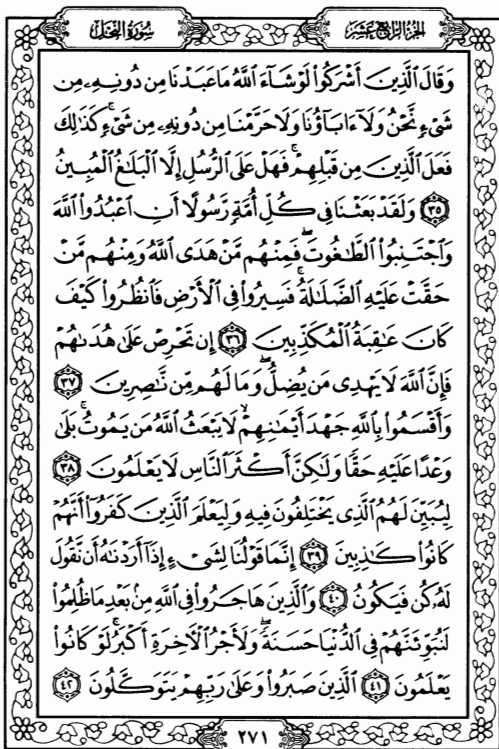 الجزء الرابع عشر
سورة النحل
وَقَالَ ٱلَّذِينَ أَشۡرَكُواْ لَوۡ شَآءَ ٱللَّهُ مَا عَبَدۡنَا مِن دُونِهِۦ مِن
شَيۡءٖ نَّحۡنُ وَلَآ ءَابَآؤُنَا وَلَا حَرَّمۡنَا مِن دُونِهِۦ مِن شَيۡءٖۚ كَذَٰلِكَ
فَعَلَ ٱلَّذِينَ مِن قَبۡلِهِمۡۚ فَهَلۡ عَلَى ٱلرُّسُلِ إِلَّا ٱلۡبَلَٰغُ ٱلۡمُبِينُ
٣٥ وَلَقَدۡ بَعَثۡنَا فِي كُلِّ أُمَّةٖ رَّسُولًا أَنِ ٱعۡبُدُواْ ٱللَّهَ
وَٱجۡتَنِبُواْ ٱلطَّٰغُوتَۖ فَمِنۡهُم مَّنۡ هَدَى ٱللَّهُ وَمِنۡهُم مَّنۡ
حَقَّتۡ عَلَيۡهِ ٱلضَّلَٰلَةُۚ فَسِيرُواْ فِي ٱلۡأَرۡضِ فَٱنظُرُواْ كَيۡفَ
كَانَ عَٰقِبَةُ ٱلۡمُكَذِّبِينَ ٣٦ إِن تَحۡرِصۡ عَلَىٰ هُدَىٰهُمۡ
فَإِنَّ ٱللَّهَ لَا يَهۡدِي مَن يُضِلُّۖ وَمَا لَهُم مِّن نَّٰصِرِينَ ٣٧
وَأَقۡسَمُواْ بِٱللَّهِ جَهۡدَ أَيۡمَٰنِهِمۡ لَا يَبۡعَثُ ٱللَّهُ مَن يَمُوتُۚ بَلَىٰ
وَعۡدًا عَلَيۡهِ حَقّٗا وَلَٰكِنَّ أَكۡثَرَ ٱلنَّاسِ لَا يَعۡلَمُونَ ٣٨
لِيُبَيِّنَ لَهُمُ ٱلَّذِي يَخۡتَلِفُونَ فِيهِ وَلِيَعۡلَمَ ٱلَّذِينَ كَفَرُوٓاْ أَنَّهُمۡ
كَانُواْ كَٰذِبِينَ ٣٩ إِنَّمَا قَوۡلُنَا لِشَيۡءٍ إِذَآ أَرَدۡنَٰهُ أَن نَّقُولَ
لَهُۥ كُن فَيَكُونُ ٤٠ وَٱلَّذِينَ هَاجَرُواْ فِي ٱللَّهِ مِنۢ بَعۡدِ مَا ظُلِمُواْ
لَنُبَوِّئَنَّهُمۡ فِي ٱلدُّنۡيَا حَسَنَةٗۖ وَلَأَجۡرُ ٱلۡأٓخِرَةِ أَكۡبَرُۚ لَوۡ كَانُواْ
يَعۡلَمُونَ ٤١ ٱلَّذِينَ صَبَرُواْ وَعَلَىٰ رَبِّهِمۡ يَتَوَكَّلُونَ ٤٢
٢٧١